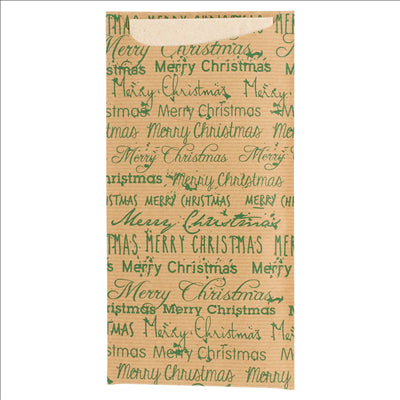 Merry Christmas
Merry Christmas
Merry Christmas
Merry Christmas
Merry Christmas
Merry Christmas Merry
Christmas Merry Christmas
ISTMAS MERRY CHRISTMAS MERRY
Merry Christmas
MAS MERRY CHRISTMAS MERRY
as Merry Christmas Merry
Merry Christmas
istmas Merry Christmas Merry
TMAS Merry Christmas
stmas Merry Christmas Merry
Merry Christmas Merry